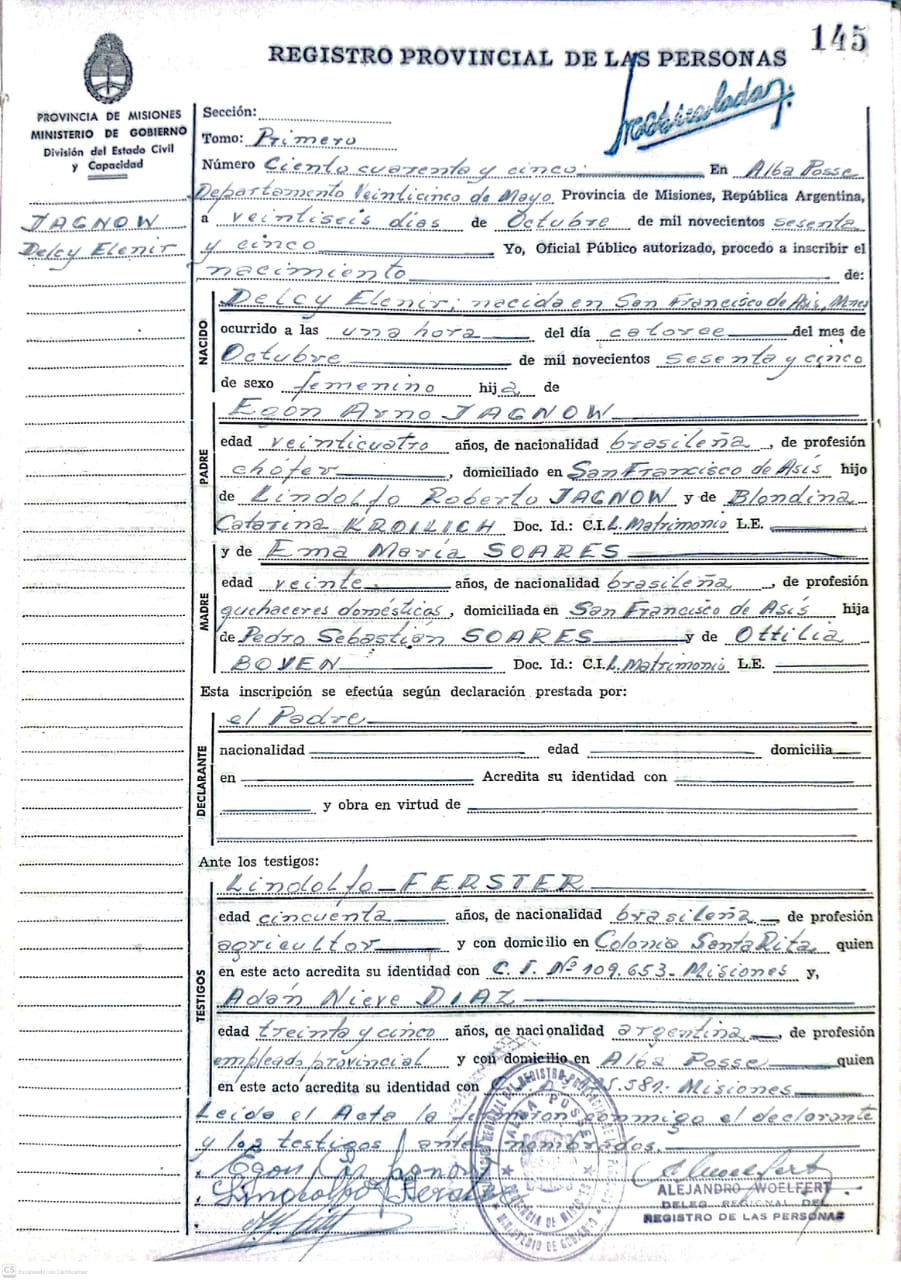 145
REGISTRO PROVINCIAL DE LAS PERSONAS
PROVINCIA DE MISIONES
MINISTERIO DE GOBIERNO
División del Estado Civil
y Capacidad
JAGNOW
Delcy Elenir
Sección:
Tomo: Primero
Número Ciento cuarenta y cinco. En Alba Posse
Departamento Veinticinco de Mayo Provincia de Misiones, República Argentina,
a veintiseis días de Octubre de mil novecientos sesenta
y cinco Yo, Oficial Público autorizado, procedo a inscribir el
nacimiento de:
NACIDO
Delcy Elenir; nacida en San Francisco de Asis, Mnes
ocurrido a las una hora del día catorce del mes de
Octubre de mil novecientos sesenta y cinco
de sexo femenino hija de
PADRE
Egon Arno JAGNOW
edad veinticuatro años, de nacionalidad brasileña, de profesión
chófer, domiciliado en San Francisco de Asís hijo
de Lindolfo Roberto JAGNOW y de Blondina
Catarina KROILICH Doc. Id.: C.I. L. Matrimonio L.E.
MADRE
y de Ema María SOARES
edad veinte años, de nacionalidad brasileña, de profesión
quehaceres domésticos, domiciliada en San Francisco de Asís hija
de Pedro Sebastián SOARES y de Ottilia
BOVEN Doc. Id.: C.I. L. Matrimonio L.E.
Esta inscripción se efectúa según declaración prestada por:
DECLARANTE
el Padre
nacionalidad edad domicilia
en Acredita su identidad con
y obra en virtud de
Ante los testigos:
TESTIGOS
Lindolfo FERSTER
edad cincuenta años, de nacionalidad brasileña, de profesión
agricultor y con domicilio en Colonia Santa Rita quien
en este acto acredita su identidad con C. I. Nº 109.653- Misiones y,
Adán Nieve DIAZ
edad treinta y cinco años, de nacionalidad argentina, de profesión
empleado provincial y con domicilio en Alba Posse quien
en este acto acredita su identidad con 5.581- Misiones
Leida el Acta la firmaron conmigo el declarante
y los testigos antes nombrados.
ALBA POSSE
PROVINCIA DE MISIONES
MINISTERIO DE GOBIERNO
ALEJANDRO WOELFERT
DELEG. REGIONAL DEL
REGISTRO DE LAS PERSONAS
CS Escaneado con CamScanner